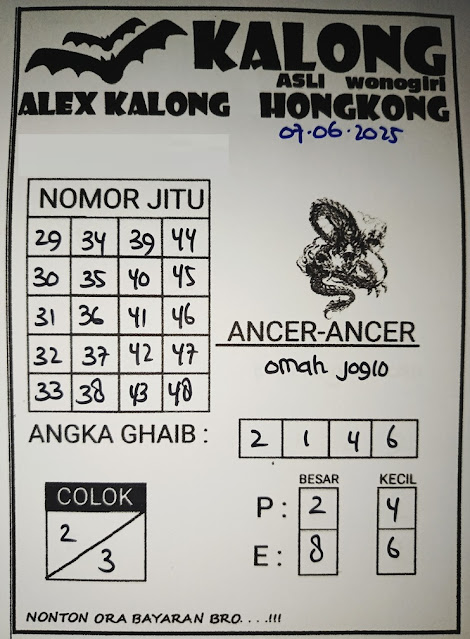 KALONG
ASLI wonogiri
ALEX KALONG HONGKONG
07-06-2025
NOMOR JITU
29 34 39 44
30 35 40 45
31 36 41 46
32 37 42 47
33 38 43 48
ANCER-ANCER
omah joglo
ANGKA GHAIB : 2 1 4 6
COLOK
2 / 3
BESAR KECIL
P : 2 4
E : 8 6
NONTON ORA BAYARAN BRO. . . .!!!